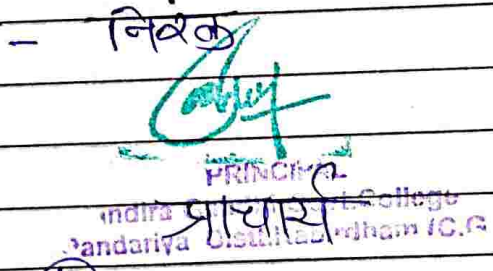 - निरंक
PRINCIPAL
प्राचार्य
Indira College
Pandariya Distt. Kabirdham (C.G